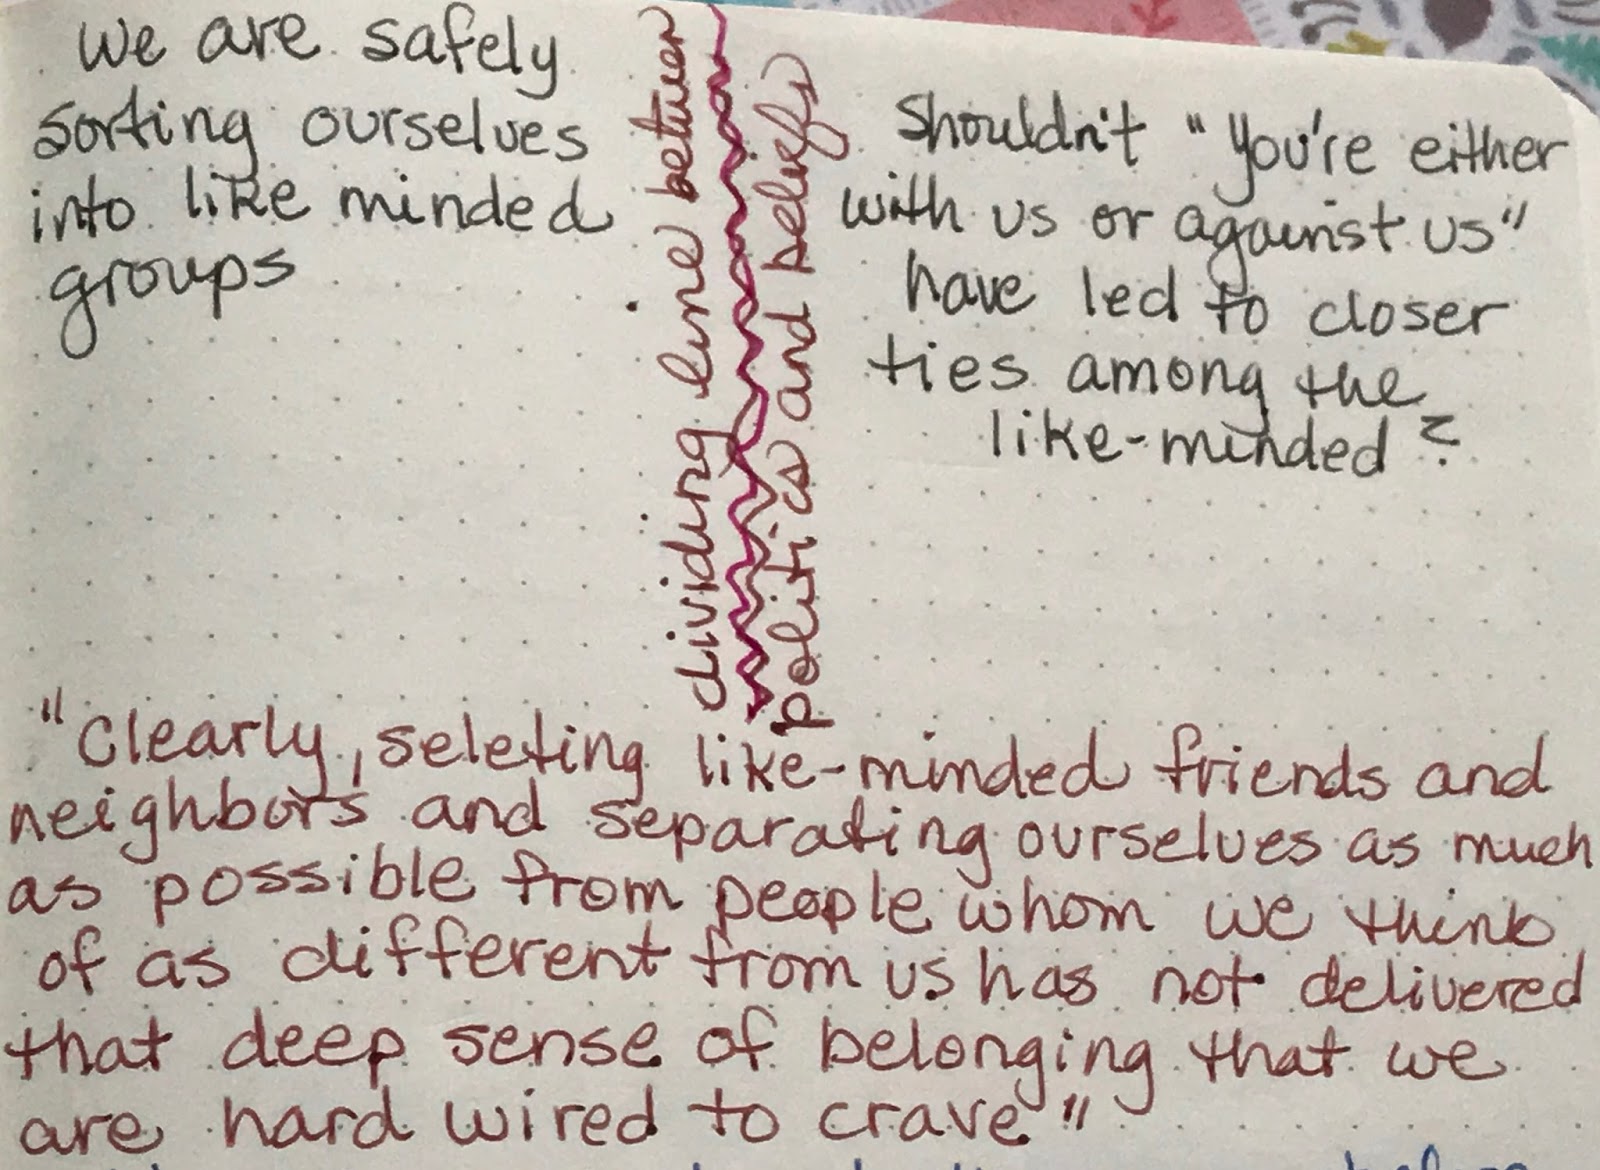 we are safely
sorting ourselves
into like minded
groups
dividing line between
politics and beliefs
Shouldn't "You're either
with us or against us"
have led to closer
ties among the
like-minded?
"Clearly, seleting like-minded friends and
neighbors and separating ourselves as much
as possible from people whom we think
of as different from us has not delivered
that deep sense of belonging that we
are hard wired to crave"